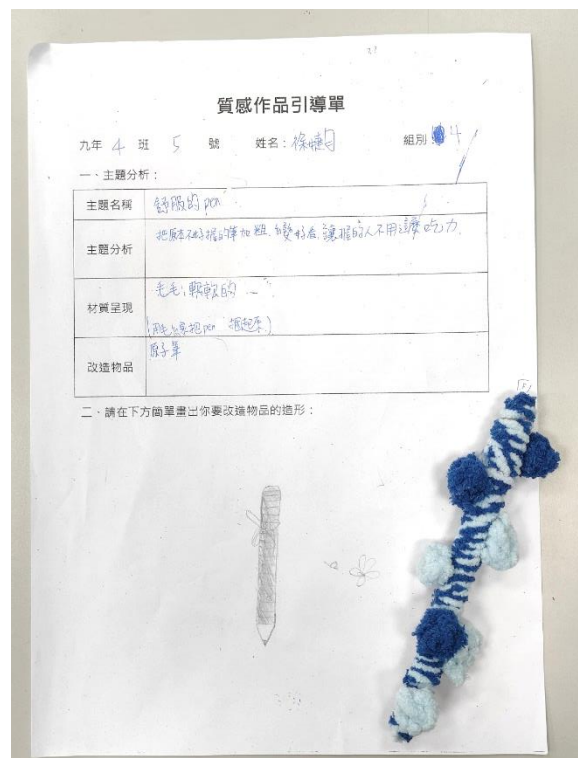 質感作品引導單
九年 4 班 5 號 姓名：徐 組別：4
一、主題分析：
主題名稱 舒服的pen
主題分析 把原本不好握的筆加粗、變好看，讓握的人不用這麼吃力.
材質呈現 毛毛，軟軟的
(用毛線把pen 捆起來)
改造物品 原子筆
二、請在下方簡單畫出你要改造物品的造形：